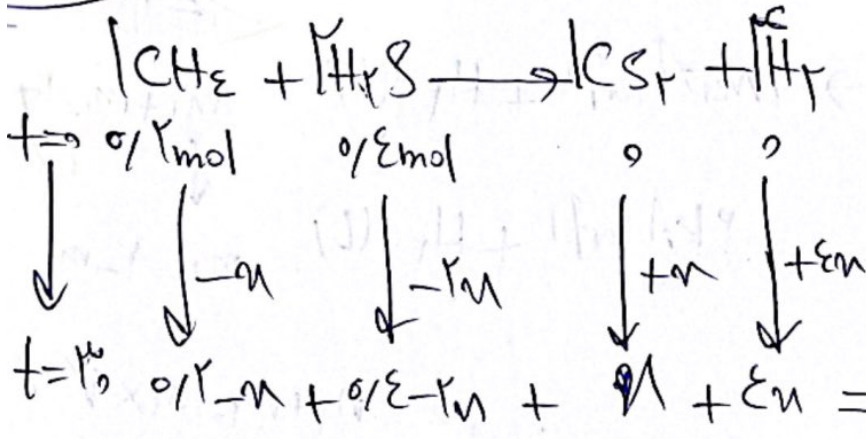 ۱CH۴ + ۲H۲S → ۱CS۲ + ۴H۲
t=۰ ۰/۲mol ۰/۴mol ۰ ۰
-n -۲n +n +۴n
t=۳۰ ۰/۲-n + ۰/۴-۲n + n + ۴n =